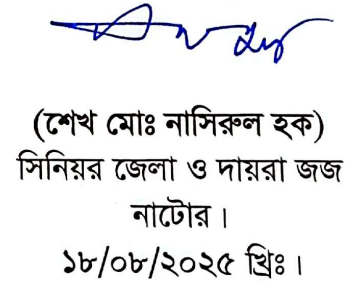 (শেখ মোঃ নাসিরুল হক)
সিনিয়র জেলা ও দায়রা জজ
নাটোর।
১৮/০৮/২০২৫ খ্রিঃ।